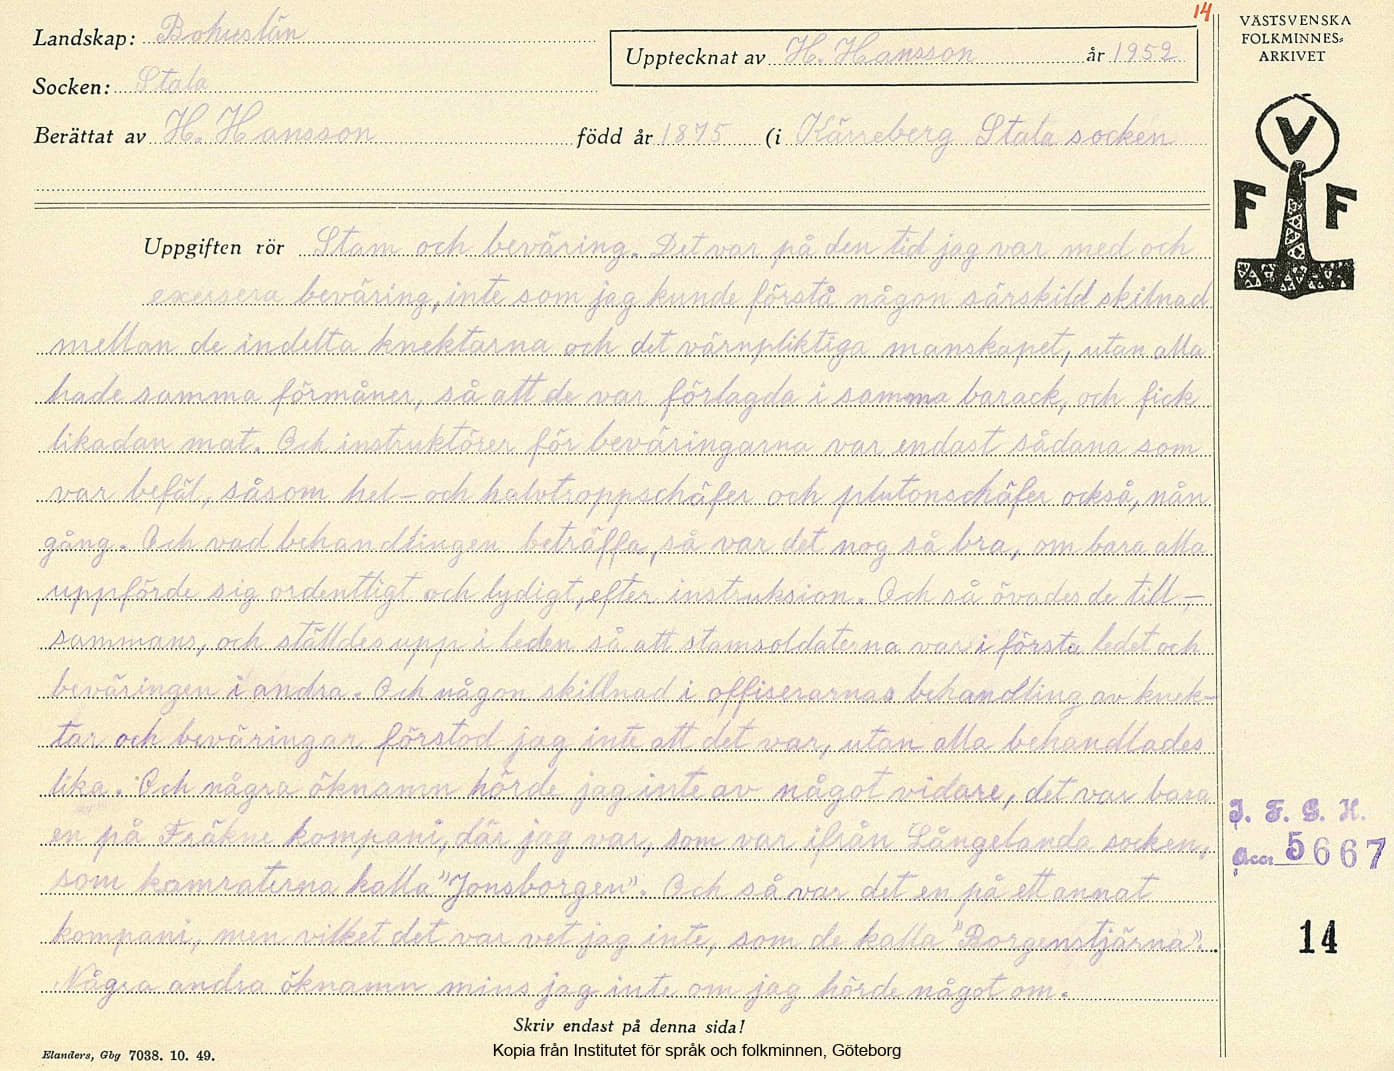 14
Landskap: Bohuslän
Socken: Stala
Upptecknat av H. Hansson år 1952
Berättat av H. Hansson född år 1875 (i Kärreberg Stala socken
Uppgiften rör Stam och beväring. Det var på den tid jag var med och
exersera beväring, inte som jag kunde förstå någon särskild skilnad
mellan de indelta knektarna och det värnpliktiga manskapet, utan alla
hade samma förmåner, så att de var förlagda i samma barack, och fick
likadan mat. Och instruktörer för beväringarna var endast sådana som
var befäl, såsom hel- och halvtroppschäfer och plutonschäfer också, nån
gång. Och vad behandlingen beträffa, så var det nog så bra, om bara alla
uppförde sig ordentligt och lydigt, efter instruksion. Och så övades de till-
sammans, och ställdes upp i leden så att stamsoldaterna var i första ledet och
beväringen i andra. Och någon skillnad i offiserarnas behandling av knek-
tar och beväringar förstod jag inte att det var, utan alla behandlades
lika. Och några öknamn hörde jag inte av något vidare, det var bara
en på Fräkne kompani, där jag var, som var ifrån Långelanda socken,
som kamraterna kalla "Jonsborgen". Och så var det en på ett annat
kompani, men vilket det var vet jag inte, som de kalla "Borgenstjärna".
Några andra öknamn mins jag inte om jag hörde något om.
Skriv endast på denna sida!
Elanders, Gbg 7038. 10. 49.
Kopia från Institutet för språk och folkminnen, Göteborg
VÄSTSVENSKA
FOLKMINNES-
ARKIVET
V
F F
I. F. G. H.
Acc. 5667
14